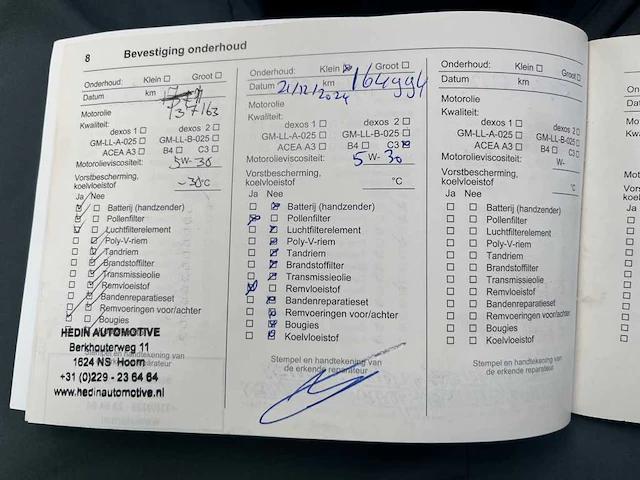 8 Bevestiging onderhoud
Onderhoud: Klein ☐ Groot ☐
Datum km
137163
Motorolie
Kwaliteit:
dexos 1 ☐ dexos 2 ☐
GM-LL-A-025 ☐ GM-LL-B-025 ☐
ACEA A3 ☐ B4 ☐ C3 ☐
Motorolieviscositeit: 5W-30
Vorstbescherming,
koelvloeistof -30°C
Ja Nee
Batterij (handzender)
Pollenfilter
Luchtfilterelement
Poly-V-riem
Tandriem
Brandstoffilter
Transmissieolie
Remvloeistof
Bandenreparatieset
Remvoeringen voor/achter
Bougies
HEDIN AUTOMOTIVE
Berkhouterweg 11
Stempel en handtekening van
1624 NS Hoorn
+31 (0)229 - 23 64 64
www.hedinautomotive.nl
Onderhoud: Klein ☒ Groot ☐
Datum 21/12/2024 km 164994
Motorolie
Kwaliteit:
dexos 1 ☐ dexos 2 ☐
GM-LL-A-025 ☐ GM-LL-B-025 ☐
ACEA A3 ☐ B4 ☐ C3 ☒
Motorolieviscositeit: 5W-30
Vorstbescherming,
koelvloeistof °C
Ja Nee
☐ ☒ Batterij (handzender)
☒ ☐ Pollenfilter
☐ ☒ Luchtfilterelement
☐ ☒ Poly-V-riem
☐ ☒ Tandriem
☐ ☒ Brandstoffilter
☐ ☒ Transmissieolie
☒ ☐ Remvloeistof
☐ ☒ Bandenreparatieset
☐ ☒ Remvoeringen voor/achter
☐ ☒ Bougies
☐ ☒ Koelvloeistof
Stempel en handtekening van
de erkende reparateur
Onderhoud: Klein ☐ Groot ☐
Datum km
Motorolie
Kwaliteit:
dexos 1 ☐ dexos 2 ☐
GM-LL-A-025 ☐ GM-LL-B-025 ☐
ACEA A3 ☐ B4 ☐ C3 ☐
Motorolieviscositeit: W-
Vorstbescherming,
koelvloeistof °C
Ja Nee
☐ ☐ Batterij (handzender)
☐ ☐ Pollenfilter
☐ ☐ Luchtfilterelement
☐ ☐ Poly-V-riem
☐ ☐ Tandriem
☐ ☐ Brandstoffilter
☐ ☐ Transmissieolie
☐ ☐ Remvloeistof
☐ ☐ Bandenreparatieset
☐ ☐ Remvoeringen voor/achter
☐ ☐ Bougies
☐ ☐ Koelvloeistof
Stempel en handtekening van
de erkende reparateur
Ja